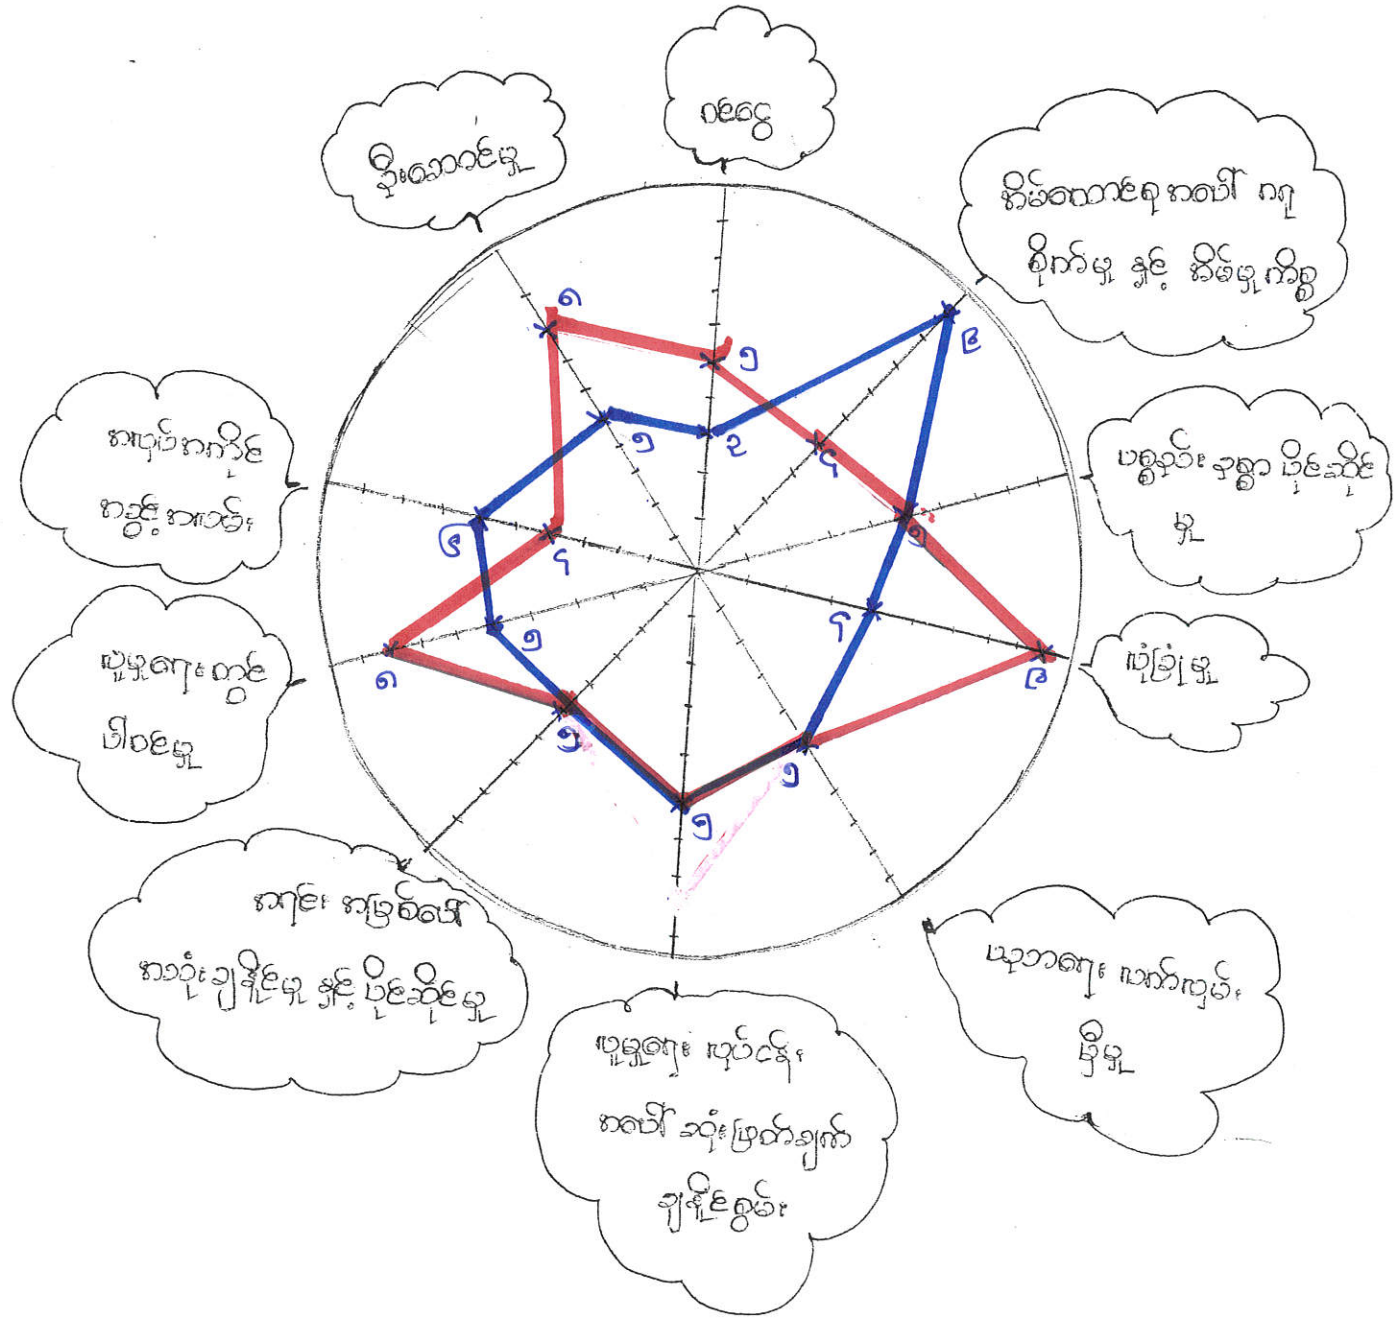 ဝင်ငွေ
ဦးဆောင်မှု
အိမ်ထောင်ရေအပေါ် ဂရု
စိုက်မှု နှင့် အိမ်မှုကိစ္စ
ပစ္စည်း ဥစ္စာ ပိုင်ဆိုင်
မှု
လုံခြုံမှု
ယုဘရေး လက်လှမ်း
မှီမှု
လူမှုရေး လုပ်ငန်း
အပေါ် ဆုံးဖြတ်ချက်
ချနိုင်စွမ်း
အရင်း အမြစ်ပေါ်
အသုံးချနိုင်မှု နှင့် ပိုင်ဆိုင်မှု
လူမှုရေးတွင်
ပါဝင်မှု
အလုပ်အကိုင်
အခွင့်အလမ်း
၈
၅
၉
၂
၅
၄
၅
၄
၉
၅
၅
၅
၅
၈
၄
၆